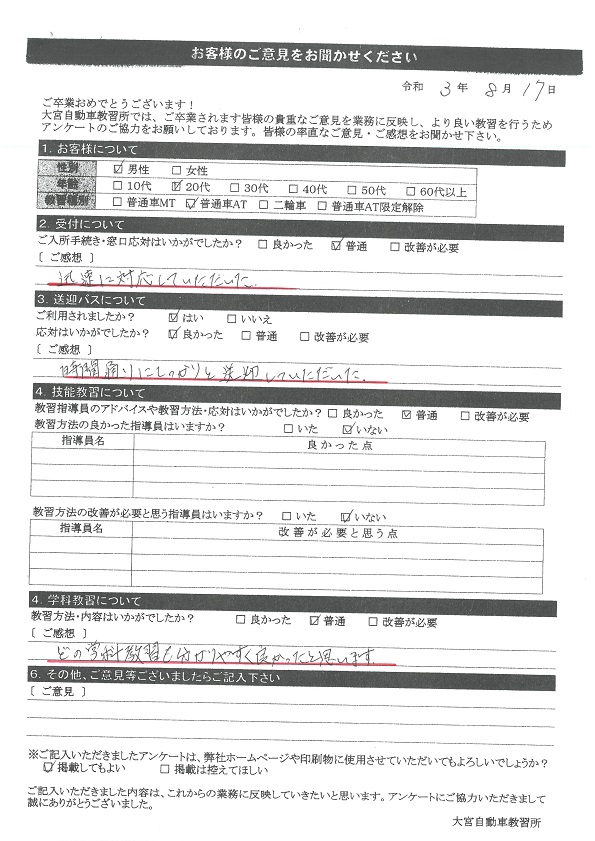 お客様のご意見をお聞かせください
令和 3 年 8 月 17 日
ご卒業おめでとうございます！
大宮自動車教習所では、ご卒業されます皆様の貴重なご意見を業務に反映し、より良い教習を行うため
アンケートのご協力をお願いしております。皆様の率直なご意見・ご感想をお聞かせ下さい。
1. お客様について
性別 ☑ 男性 □ 女性
年齢 □ 10代 ☑ 20代 □ 30代 □ 40代 □ 50代 □ 60代以上
教習種別 □ 普通車MT ☑ 普通車AT □ 二輪車 □ 普通車AT限定解除
2. 受付について
ご入所手続き・窓口応対はいかがでしたか？ □ 良かった ☑ 普通 □ 改善が必要
〔 ご感想 〕
迅速に対応していただいた。
3. 送迎バスについて
ご利用されましたか？ ☑ はい □ いいえ
応対はいかがでしたか？ ☑ 良かった □ 普通 □ 改善が必要
〔 ご感想 〕
時間通りにしっかりと送迎していただいた。
4. 技能教習について
教習指導員のアドバイスや教習方法・応対はいかがでしたか？ □ 良かった ☑ 普通 □ 改善が必要
教習方法の良かった指導員はいますか？ □ いた ☑ いない
指導員名 良かった点
教習方法の改善が必要と思う指導員はいますか？ □ いた ☑ いない
指導員名 改善が必要と思う点
4. 学科教習について
教習方法・内容はいかがでしたか？ □ 良かった ☑ 普通 □ 改善が必要
〔 ご感想 〕
どの学科教習も分かりやすく良かったと思います
6. その他、ご意見等ございましたらご記入下さい
〔 ご意見 〕
※ご記入いただきましたアンケートは、弊社ホームページや印刷物に使用させていただいてもよろしいでしょうか？
☑ 掲載してもよい □ 掲載は控えてほしい
ご記入いただきました内容は、これからの業務に反映していきたいと思います。アンケートにご協力いただきまして
誠にありがとうございました。
大宮自動車教習所